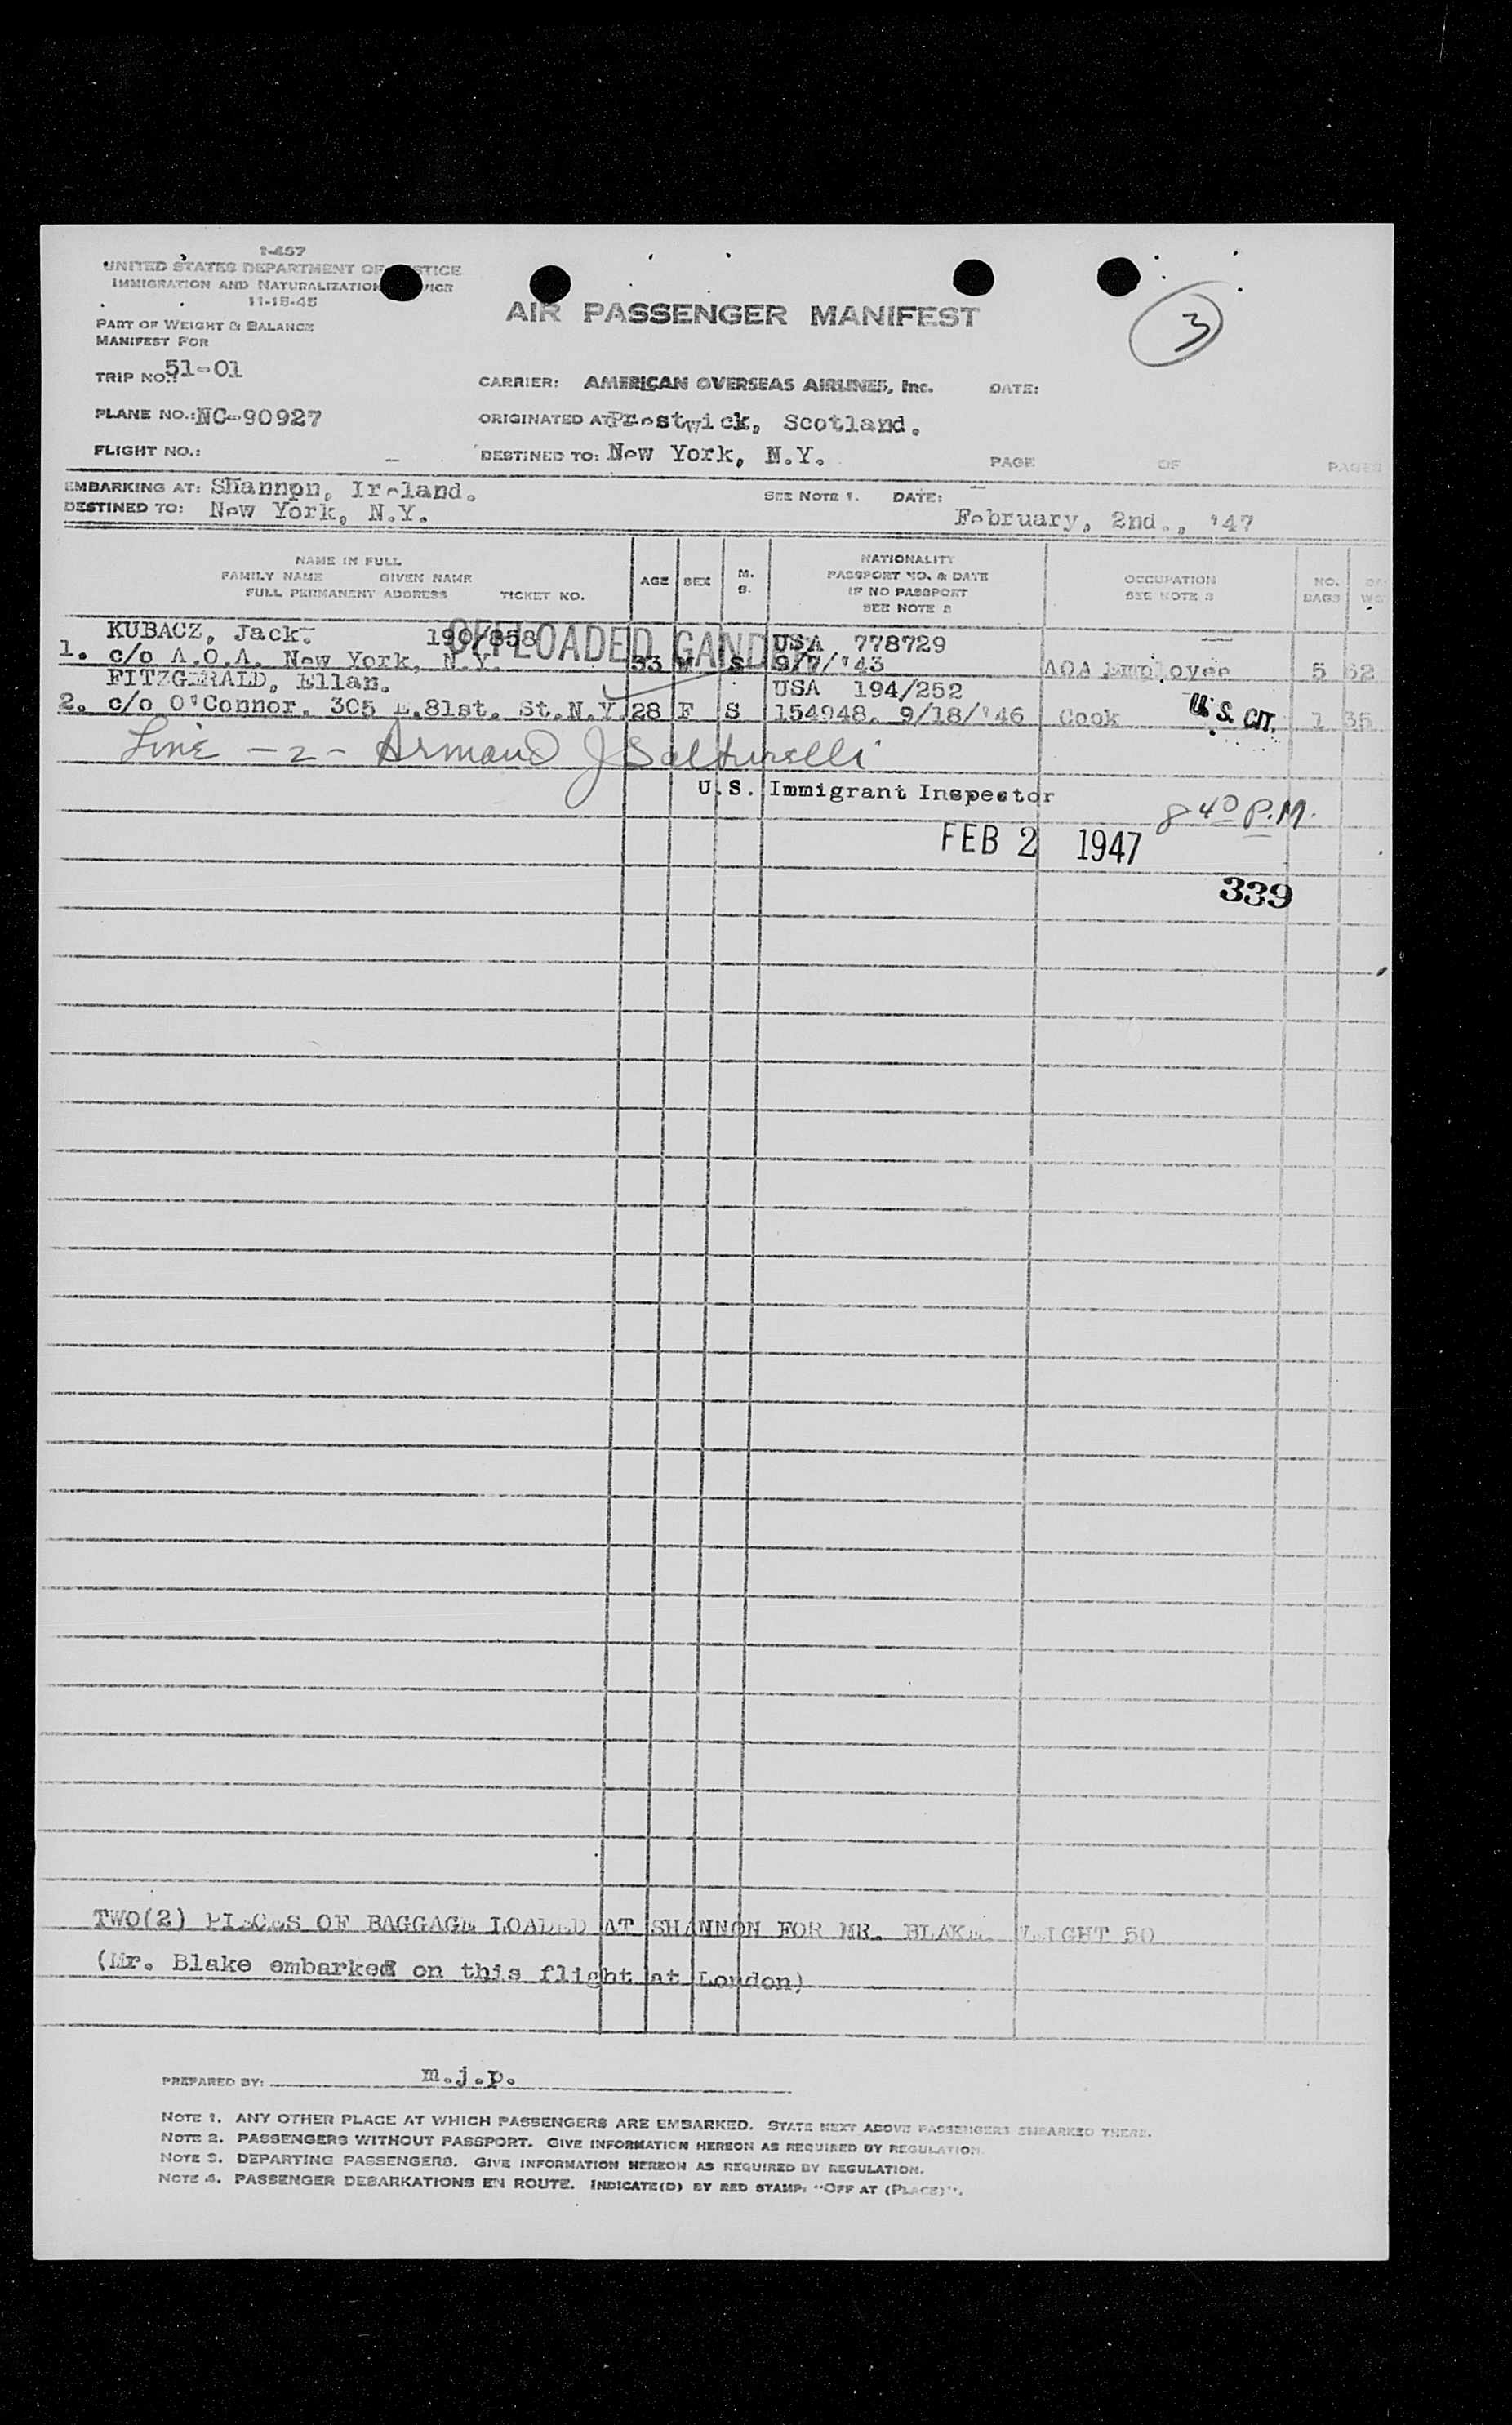 I-457
UNITED STATES DEPARTMENT OF STICE
IMMIGRATION AND NATURALIZATION VICE
11-15-45
PART OF WEIGHT & BALANCE
MANIFEST FOR
AIR PASSENGER MANIFEST
3
TRIP NO.: 51-01
CARRIER: AMERICAN OVERSEAS AIRLINES, Inc. DATE:
PLANE NO.: NC-90927
ORIGINATED AT Prestwick, Scotland.
FLIGHT NO.:
DESTINED TO: New York, N.Y. PAGE OF PAGES
EMBARKING AT: Shannon, Ireland. SEE NOTE 1. DATE:
DESTINED TO: New York, N.Y. February, 2nd., '47
NAME IN FULL
FAMILY NAME GIVEN NAME
FULL PERMANENT ADDRESS TICKET NO.
AGE SEX M. S.
NATIONALITY
PASSPORT NO. & DATE
IF NO PASSPORT
SEE NOTE 2
OCCUPATION
SEE NOTE 3
NO.
BAGS
KUBACZ, Jack. 190/858 USA 778729
OFFLOADED GANDER
1. c/o A.O.A. New York, N.Y. 33 M S 9/7/'43 AOA Employee 5 62
FITZGERALD, Ellan. USA 194/252
2. c/o O'Connor. 305 E.81st. St.N.Y. 28 F S 154948. 9/18/'46 Cook U.S. CIT. 1 35
Line - 2 - Armand J Salturelli
U.S. Immigrant Inspector
8 40 P.M.
FEB 2 1947
339
TWO(2) PIECES OF BAGGAGE LOADED AT SHANNON FOR MR. BLAKE. WEIGHT 50
(Mr. Blake embarked on this flight at London)
PREPARED BY: m.j.p.
NOTE 1. ANY OTHER PLACE AT WHICH PASSENGERS ARE EMBARKED. STATE NEXT ABOVE PASSENGERS EMBARKED THERE.
NOTE 2. PASSENGERS WITHOUT PASSPORT. GIVE INFORMATION HEREON AS REQUIRED BY REGULATION.
NOTE 3. DEPARTING PASSENGERS. GIVE INFORMATION HEREON AS REQUIRED BY REGULATION.
NOTE 4. PASSENGER DEBARKATIONS EN ROUTE. INDICATE(D) BY RED STAMP: "OFF AT (PLACE)".